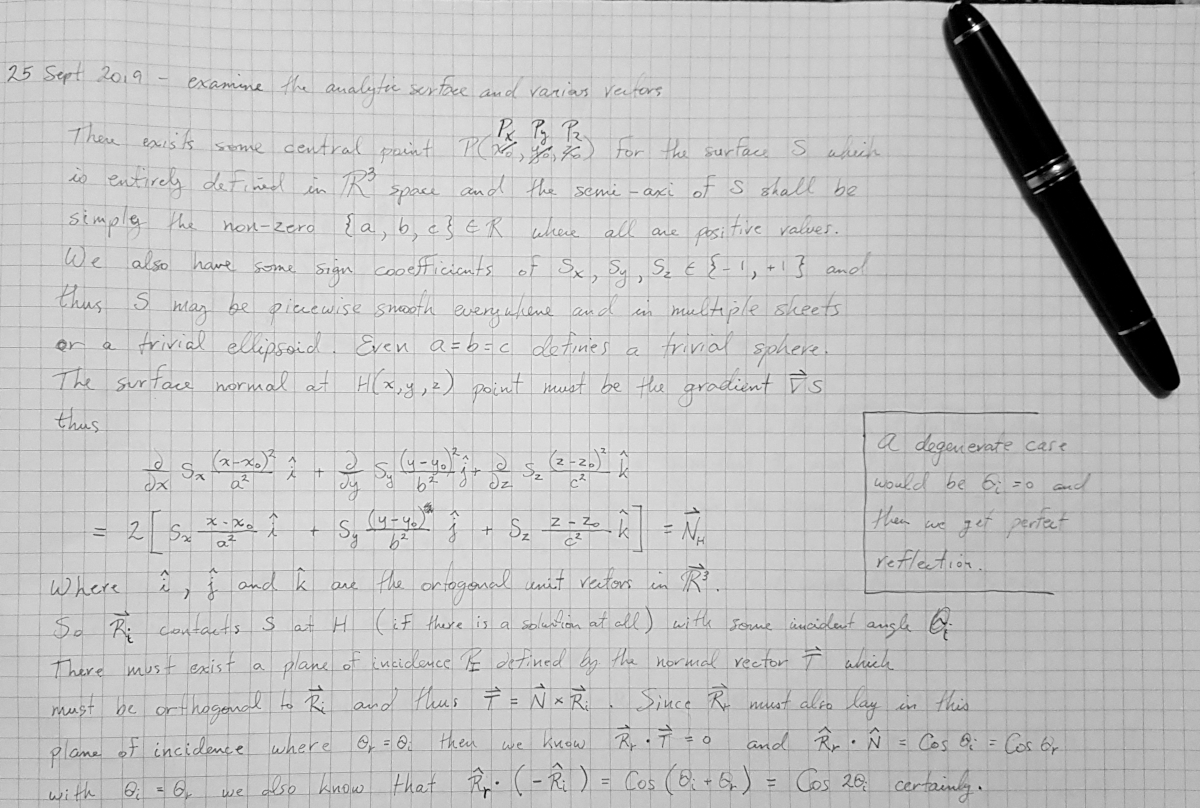 25 Sept 2019 - examine the analytic surface and various vectors
There exists some central point P(x₀, y₀, z₀) Px Py Pz for the surface S which
is entirely defined in ℝ³ space and the semi-axi of S shall be
simply the non-zero {a, b, c} ∈ R where all are positive values.
We also have some sign cooefficients of Sx, Sy, Sz ∈ {-1, +1} and
thus S may be piecewise smooth everywhere and in multiple sheets
or a trivial ellipsoid. Even a=b=c defines a trivial sphere.
The surface normal at H(x,y,z) point must be the gradient ∇⃗S
thus
∂/∂x Sx (x-x₀)²/a² î + ∂/∂y Sy (y-y₀)²/b² ĵ + ∂/∂z Sz (z-z₀)²/c² k̂
= 2[Sx (x-x₀)/a² î + Sy (y-y₀)/b² ĵ + Sz (z-z₀)/c² k̂] = N⃗H
a degenerate case
would be θi = 0 and
then we get perfect
reflection.
Where î, ĵ and k̂ are the ortogonal unit vectors in ℝ⃗³.
So R⃗i contacts S at H (if there is a solution at all) with some incident angle θi
There must exist a plane of incidence PI defined by the normal vector T⃗ which
must be orthogonal to R⃗i and thus T⃗ = N⃗ × R⃗i. Since R⃗r must also lay in this
plane of incidence where θr = θi then we know R⃗r · T⃗ = 0 and R̂r · N̂ = Cos θi = Cos θr
with θi = θr we also know that R̂r · (-R̂i) = Cos (θi + θr) = Cos 2θi certainly.